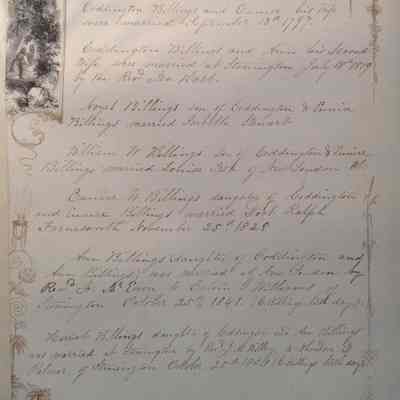 Coddington Billings and Eunice his wife
were married September 13th 1797.
Coddington Billings and Ann his second
Wife were married at Stonington July 18th
by the Revd Ira Hart.
Noyes Billings son of Coddington & Eunice
Billings married Isabella Stewart
William W Billings son of Coddington & Eunice
Billings married Louisa of New London Ct.
Eunice W. Billings daughter of Coddington
and Eunice Billings married Doct Ralph
Farnsworth November 25th 1828
Ann Billings daughter of Coddington and
Ann Billings was married at New London by
Revd McEwen to Calvin G Williams of
Stonington October 25th 1841.
Harriet Billings daughter of Coddington and Ann Billings
was married at Stonington by Revd
Palmer of Stonington October 25th